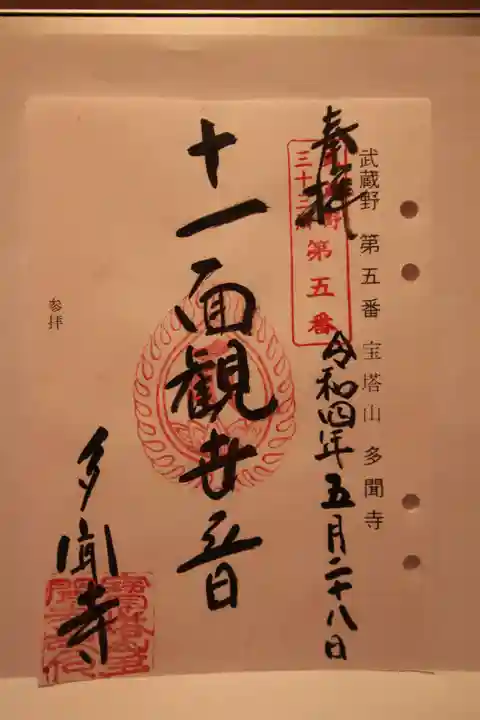 武蔵野 第五番 宝塔山 多聞寺
奉拝
第五番
令和四年五月二十八日
十一面観世音
多聞寺
参拝